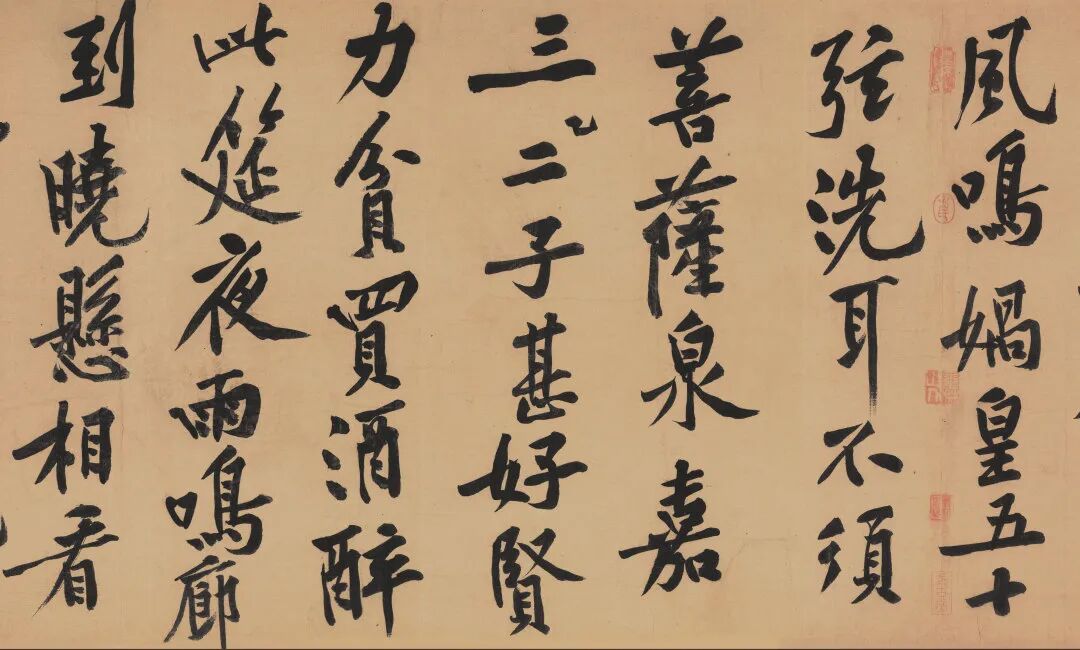 風鳴媧皇五十
弦洗耳不須
菩薩泉嘉
三二子甚好賢
力貧買酒醉
此筵夜雨鳴廊
到曉懸相看